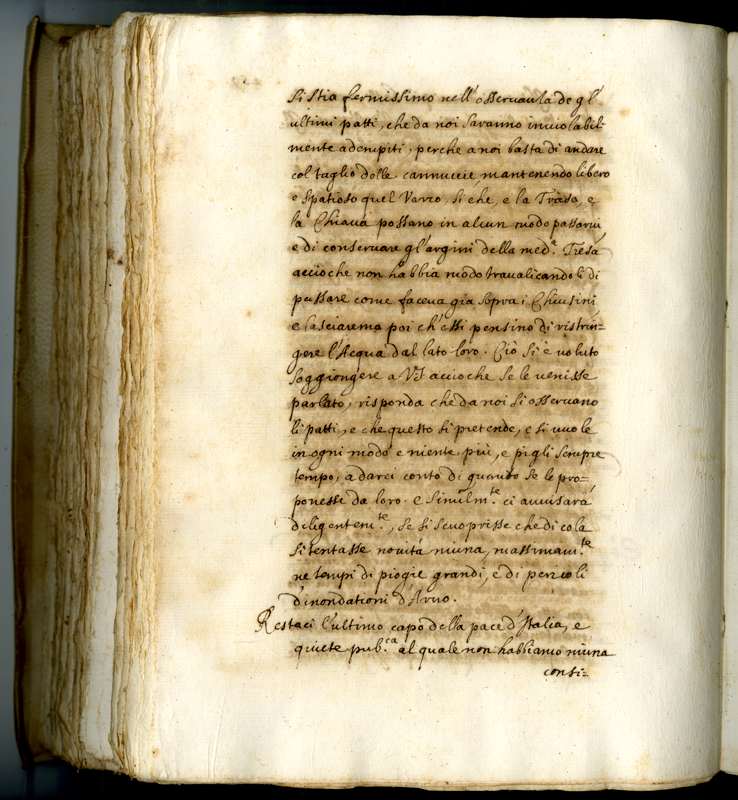 si stia fermissimo nell'osservanza degl'
ultimi patti, che da noi saranno inviolabil-
mente adempiti, perche a noi basta di andare
col taglio delle cannuccie mantenendo libero
e spatioso quel Varco, si che, e la Tresa, e
la Chiana possano in alcun modo passarvi
e di conservare gl'argini della med.ª Tresa
accioche non habbia modo travalicandoli di
passare come faceva gia sopra i Chiusini
e lasciaremo poi ch'essi pensino di ristrin=
gere l'Acqua dal lato loro. Ciò si è voluto
soggiongere a VS accioche se le venisse
parlato, risponda che da noi si osservano
li patti, e che questo si pretende, e si vuole
in ogni modo e niente più, e pigli sempre
tempo, a darci conto di quanto se le pro-
ponesse da loro. e Similm.te ci avvisarà
diligentem.te, se si scuoprisse che di cola
si tentasse novità niuna, massimam.te
ne tempi di piogie grandi, e di pericoli
d'inondationi d'Arno.
Restaci l'ultimo capo della pace d'Italia, e
quiete pub.ca al quale non habbiamo niuna
consi=